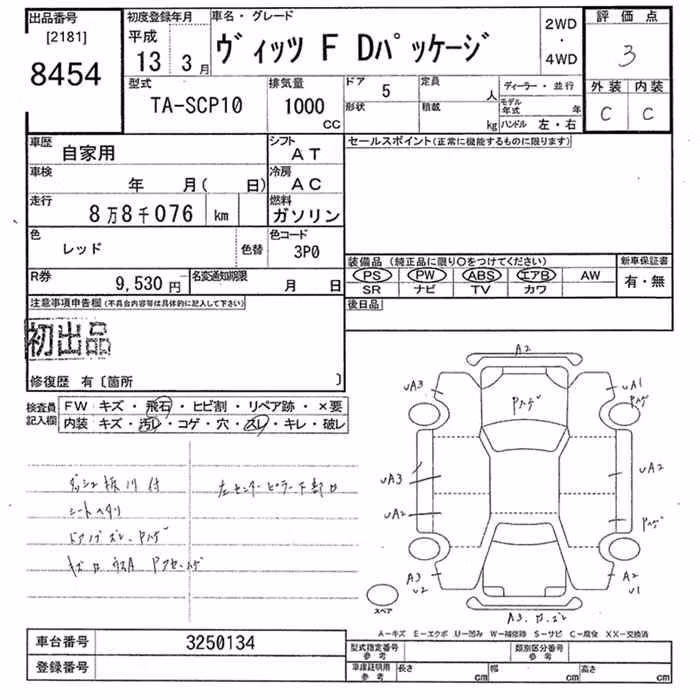 出品番号
[2181]
8454
初度登録年月
平成
13 3月
車名・グレード
ヴィッツ F Dパッケージ
2WD
・
4WD
評価点
3
外装 内装
C C
型式
TA-SCP10
排気量
1000
CC
ドア 5
形状
定員 人
積載 kg
ディーラー・並行
モデル年式 年
ハンドル 左・右
車歴
自家用
シフト
AT
車検
年 月( 日)
冷房
AC
走行
8万8千076 km
燃料
ガソリン
色
レッド
色替
色コード
3P0
R券
9,530円
名変通知期限
月 日
セールスポイント(正常に機能するものに限ります)
装備品(純正品に限り○をつけてください)
PS PW ABS エアB AW
SR ナビ TV カワ
新車保証書
有・無
後日品
注意事項申告欄(不具合内容等は具体的に記入して下さい)
初出品
修復歴 有〔箇所 〕
検査員
記入欄
FW キズ・飛石・ヒビ割・リペア跡・×要
内装 キズ・汚レ・コゲ・穴・スレ・キレ・破レ
シートヘタリ
A2
UA3
UA1
Pハゲ
Pハゲ
UA3
UA2
UA2
Pハゲ
A3
U2
A2
U1
スペア
A-キズ E-エクボ U-凹み W-補修跡 S-サビ C-腐食 XX-交換済
車台番号
3250134
登録番号
型式指定番号
参考
類別区分番号
参考
車庫証明用
参考
長さ cm
幅 cm
高さ cm